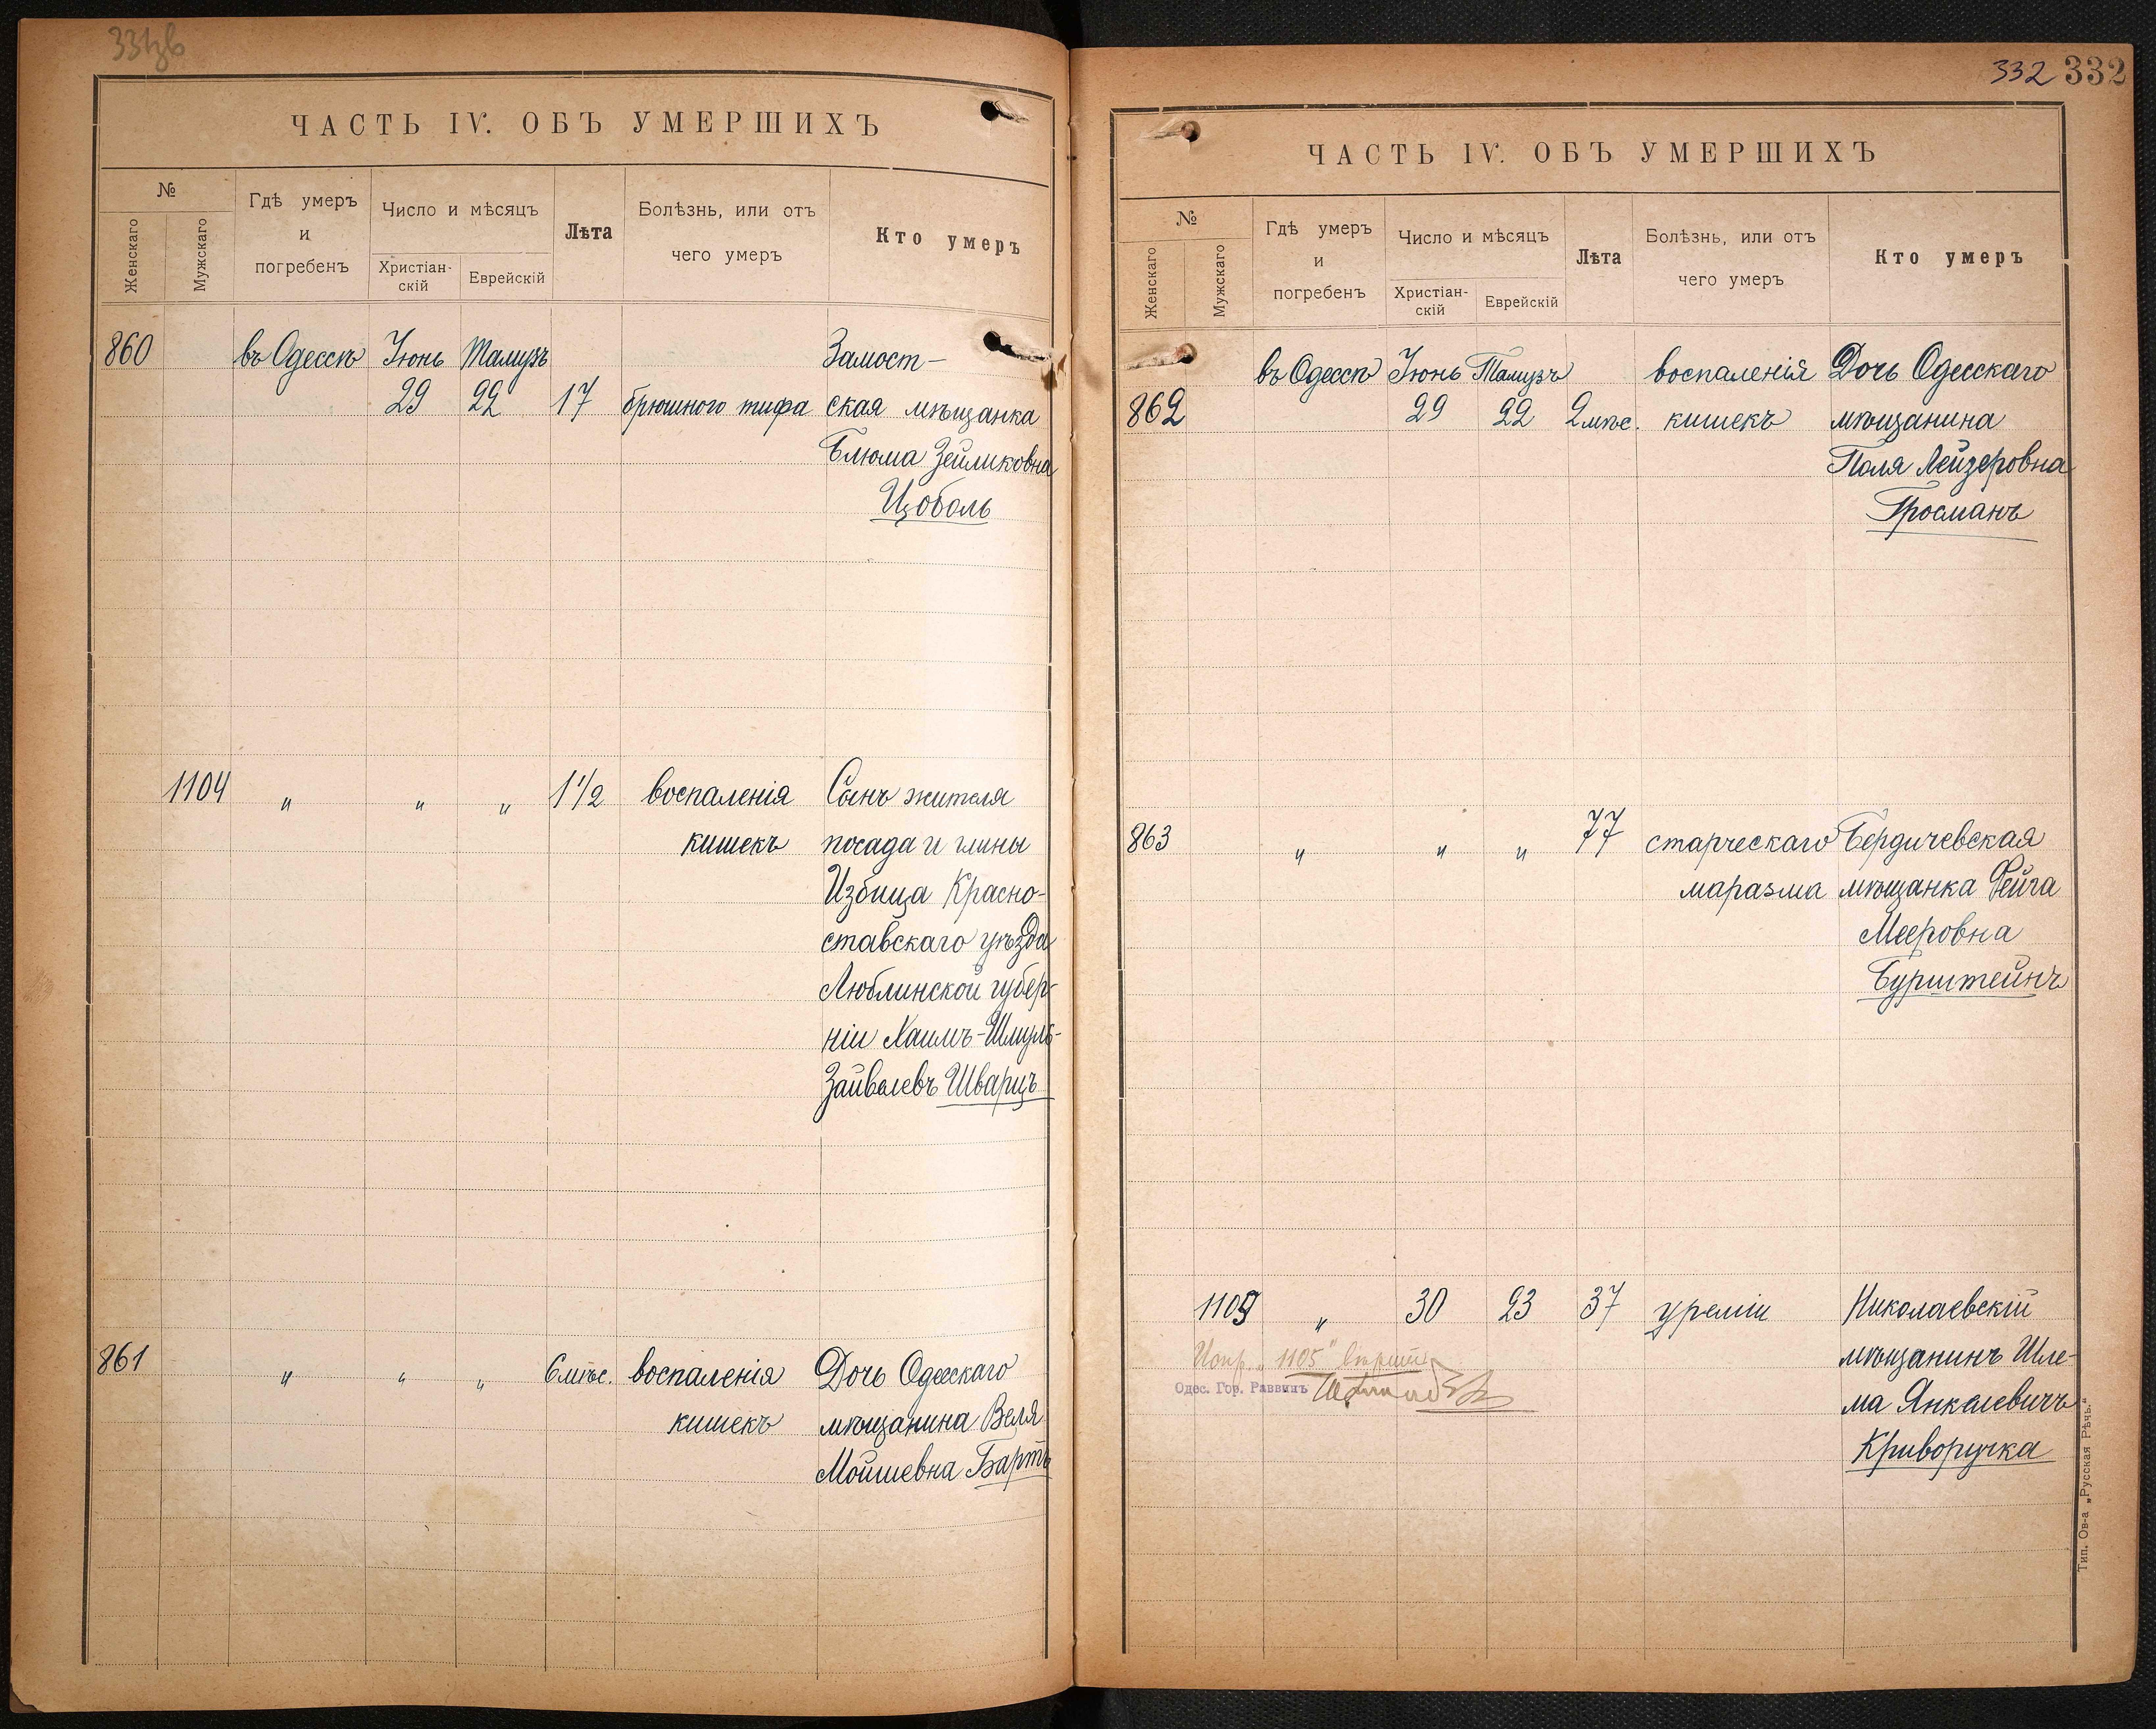 331зв
ЧАСТЬ IV. ОБЪ УМЕРШИХЪ
№
Женскаго
Мужскаго
Гдѣ умеръ
и
погребенъ
Число и мѣсяцъ
Христіан-
скій
Еврейскій
Лѣта
Болѣзнь, или отъ
чего умеръ
Кто умеръ
860 въ Одессѣ Іюнь Тамузъ Замост-
29 22 17 брюшного тифа ская мѣщанка
Блюма Зейликовна
Цоболь
1104 " " " 1 1/2 воспаленія Сынъ жителя
кишекъ посада и гмины
Избица Красно-
ставскаго уѣзда
Люблинской губер-
ніи Хаимъ-Шмуль-
Зайвелевъ Шварцъ
861 " " " 6 мѣс. воспаленія Дочь Одесскаго
кишекъ мѣщанина Веля
Мойшевна Бартъ
332 332
ЧАСТЬ IV. ОБЪ УМЕРШИХЪ
№
Женскаго
Мужскаго
Гдѣ умеръ
и
погребенъ
Число и мѣсяцъ
Христіан-
скій
Еврейскій
Лѣта
Болѣзнь, или отъ
чего умеръ
Кто умеръ
въ Одессѣ Іюнь Тамузъ воспаленія Дочь Одесскаго
862 29 22 2 мѣс. кишекъ мѣщанина
Поля Лейзеровна
Гросманъ
863 " " " 77 старческаго Бердичевская
маразма мѣщанка Фейга
Мееровна
Бурштейнъ
1105 " 30 23 37 уреміи Николаевскій
Испр. "1105" вѣрить мѣщанинъ Шле-
Одес. Гор. Раввинъ
ма Янкелевичъ
Криворучка
Тип. Ов-а „Русская Рѣчь."